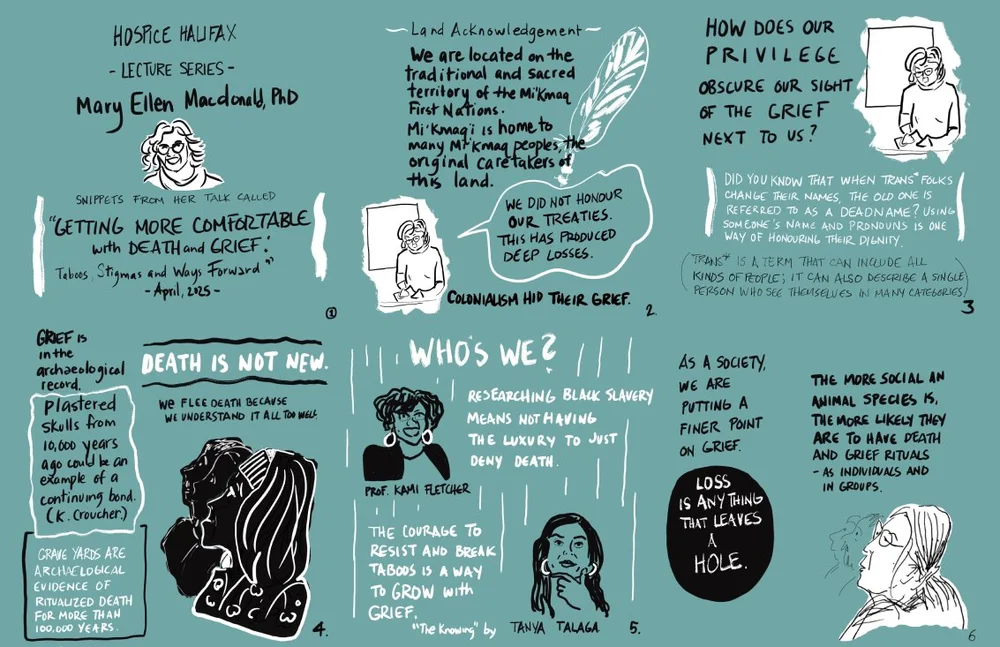 HOSPICE HALIFAX
- LECTURE SERIES -
Mary Ellen Macdonald, PhD
SNIPPETS FROM HER TALK CALLED
"GETTING MORE COMFORTABLE
with DEATH and GRIEF:
Taboos, Stigmas and Ways Forward"
- April, 2025 -
1
Land Acknowledgement
We are located on the
traditional and sacred
territory of the Mi'kmaq
First Nations.
Mi'kmaq'i is home to
many Mi'kmaq peoples, the
original caretakers of
this land.
WE DID NOT HONOUR
OUR TREATIES.
THIS HAS PRODUCED
DEEP LOSSES.
COLONIALISM HID THEIR GRIEF.
2.
HOW DOES OUR
PRIVILEGE
OBSCURE OUR SIGHT
OF THE GRIEF
NEXT TO US?
DID YOU KNOW THAT WHEN TRANS* FOLKS
CHANGE THEIR NAMES, THE OLD ONE IS
REFERRED TO AS A DEADNAME? USING
SOMEONE'S NAME AND PRONOUNS IS ONE
WAY OF HONOURING THEIR DIGNITY.
(TRANS* IS A TERM THAT CAN INCLUDE ALL
KINDS OF PEOPLE; IT CAN ALSO DESCRIBE A SINGLE
PERSON WHO SEE THEMSELVES IN MANY CATEGORIES)
3
GRIEF is
in the
archaeological
record.
Plastered
skulls from
10,000 years
ago could be an
example of a
continuing bond.
(K. Croucher.)
GRAVE YARDS ARE
ARCHAELOGICAL
EVIDENCE OF
RITUALIZED DEATH
FOR MORE THAN
100,000 YEARS.
DEATH IS NOT NEW.
WE FLEE DEATH BECAUSE
WE UNDERSTAND IT ALL TOO WELL.
4.
WHO'S WE?
RESEARCHING BLACK SLAVERY
MEANS NOT HAVING
THE LUXURY TO JUST
DENY DEATH.
PROF. KAMI FLETCHER
THE COURAGE TO
RESIST AND BREAK
TABOOS IS A WAY
TO GROW with
GRIEF.
"The Knowing" by TANYA TALAGA
5.
AS A SOCIETY,
WE ARE
PUTTING A
FINER POINT
ON GRIEF.
LOSS
IS ANYTHING
THAT LEAVES
A
HOLE.
THE MORE SOCIAL AN
ANIMAL SPECIES IS,
THE MORE LIKELY THEY
ARE TO HAVE DEATH
AND GRIEF RITUALS
- AS INDIVIDUALS AND
IN GROUPS.
6